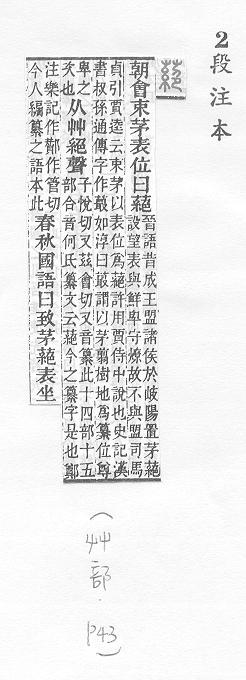 2段注本
蕝
朝會束茅表位曰蕝
晉語昔成王盟諸侯於岐陽置茅蕝
設望表與鮮卑守燎故不與盟司馬
貞引賈逵云束茅以表位爲蕝許用賈侍中說也史記漢
書叔孫通傳字作蕞如淳曰蕞謂以茅翦樹地爲纂位尊
卑之
次也
从艸絕聲
子悅切又茲會切又音纂此十四部十五
部合音何氏纂文云蕝今之纂字是也鄭
注樂記作酇作管切
今人編纂之語本此
春秋國語曰致茅蕝表坐
(艸部.P43)